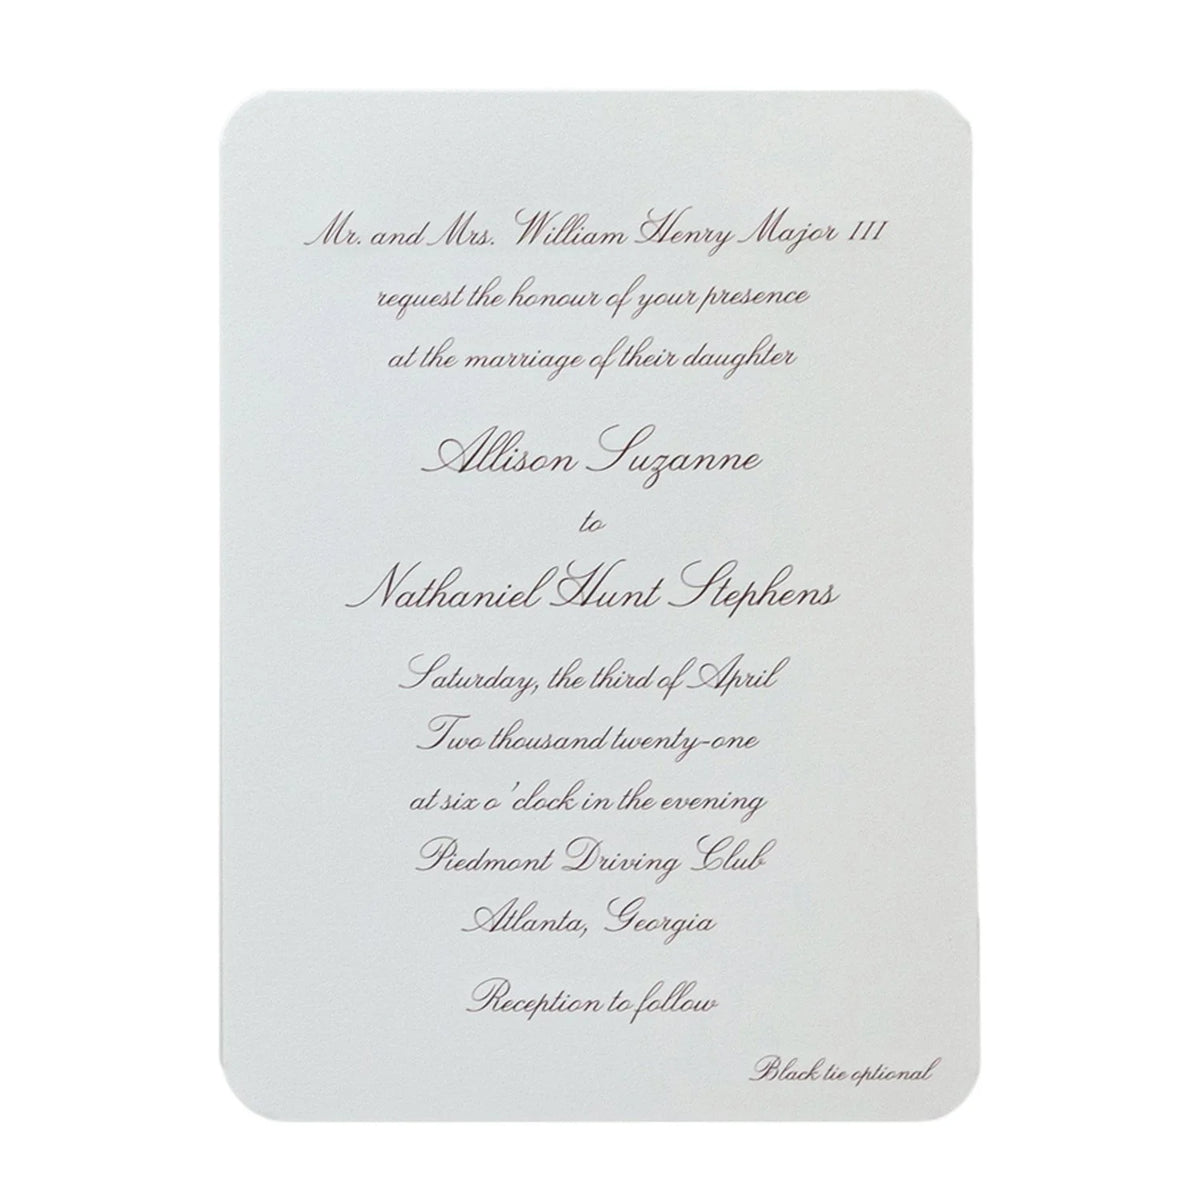 Mr. and Mrs. William Henry Major III
request the honour of your presence
at the marriage of their daughter
Allison Suzanne
to
Nathaniel Hunt Stephens
Saturday, the third of April
Two thousand twenty-one
at six o'clock in the evening
Piedmont Driving Club
Atlanta, Georgia
Reception to follow
Black tie optional